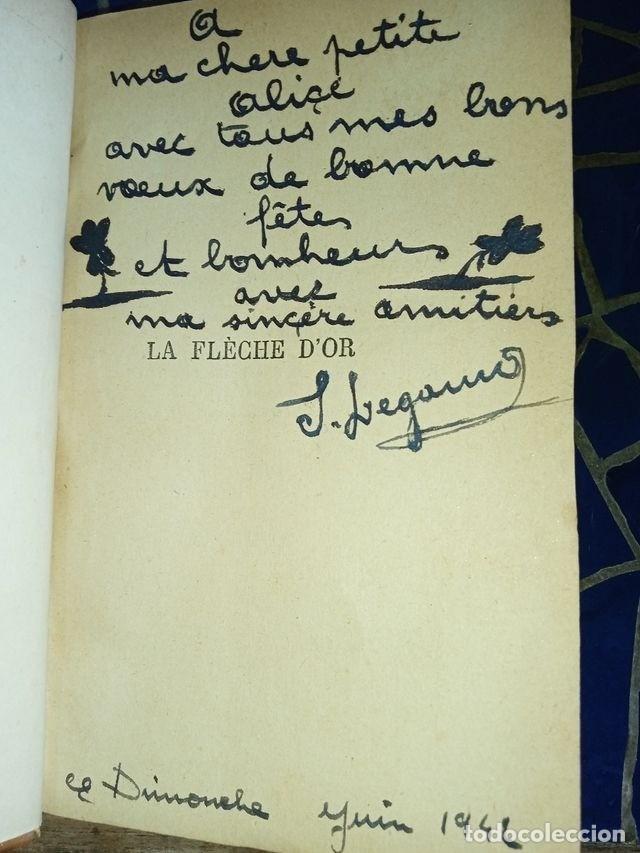 A
ma chere petite
alice
avec tous mes bons
voeux de bonne
fêtes
et bonheurs
avec
ma sincère amitiers
LA FLÈCHE D'OR
ce Dimonche Juin
todocoleccion.net